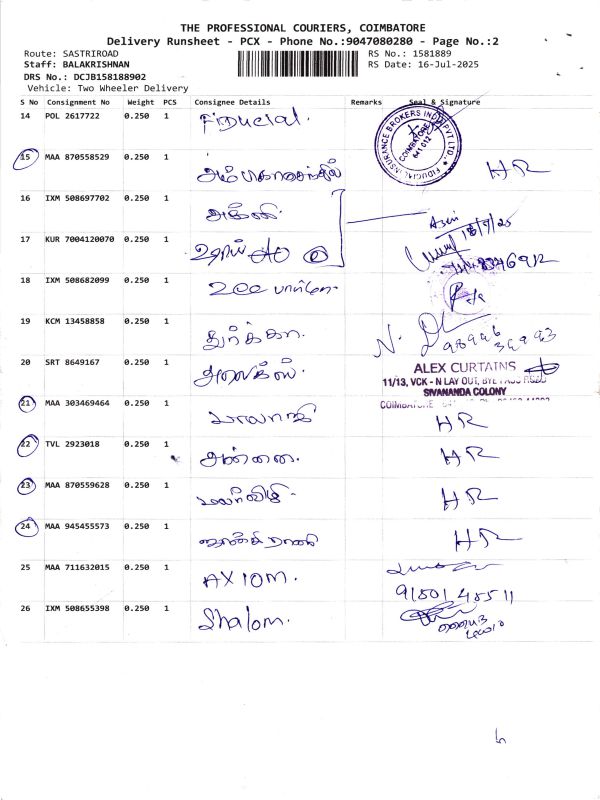 THE PROFESSIONAL COURIERS, COIMBATORE
Delivery Runsheet - PCX - Phone No.:9047080280 - Page No.:2
Route: SASTRIROAD
RS No.: 1581889
Staff: BALAKRISHNAN
RS Date: 16-Jul-2025
DRS No.: DCJB158188902
Vehicle: Two Wheeler Delivery
S No Consignment No Weight PCS Consignee Details Remarks Seal & Signature
14 POL 2617722 0.250 1 Fiducial.
FIDUCIAL INSURANCE BROKERS INDIA PVT LTD.,
COIMBATORE
641 012
15 MAA 870558529 0.250 1 HR
16 IXM 508697702 0.250 1 அக்னி.
17 KUR 7004120070 0.250 1
18 IXM 508682099 0.250 1
19 KCM 13458858 0.250 1 துர்க்கா.
20 SRT 8649167 0.250 1 அலக்ஸ்.
ALEX CURTAINS
11/13, VCK - N LAY OUT, BYE PASS ROAD
SIVANANDA COLONY
COIMBATORE
21 MAA 303469464 0.250 1 பாலாஜி HR
22 TVL 2923018 0.250 1 அன்னை. HR
23 MAA 870559628 0.250 1 மலர்விழி. HR
24 MAA 945455573 0.250 1 HR
25 MAA 711632015 0.250 1 AXIOM.
26 IXM 508655398 0.250 1 Shalom.